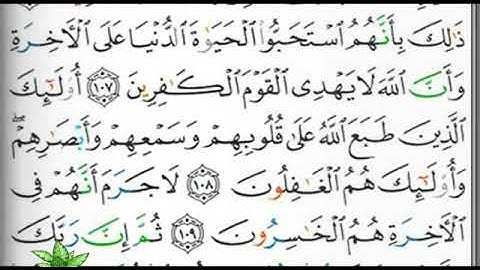 ذَٰلِكَ بِأَنَّهُمُ ٱسْتَحَبُّوا۟ ٱلْحَيَوٰةَ ٱلدُّنْيَا عَلَى ٱلْءَاخِرَةِ
وَأَنَّ ٱللَّهَ لَا يَهْدِى ٱلْقَوْمَ ٱلْكَٰفِرِينَ ١٠٧ أُو۟لَٰٓئِكَ
ٱلَّذِينَ طَبَعَ ٱللَّهُ عَلَىٰ قُلُوبِهِمْ وَسَمْعِهِمْ وَأَبْصَٰرِهِمْ ۖ
وَأُو۟لَٰٓئِكَ هُمُ ٱلْغَٰفِلُونَ ١٠٨ لَا جَرَمَ أَنَّهُمْ فِى
ٱلْءَاخِرَةِ هُمُ ٱلْخَٰسِرُونَ ١٠٩ ثُمَّ إِنَّ رَبَّكَ